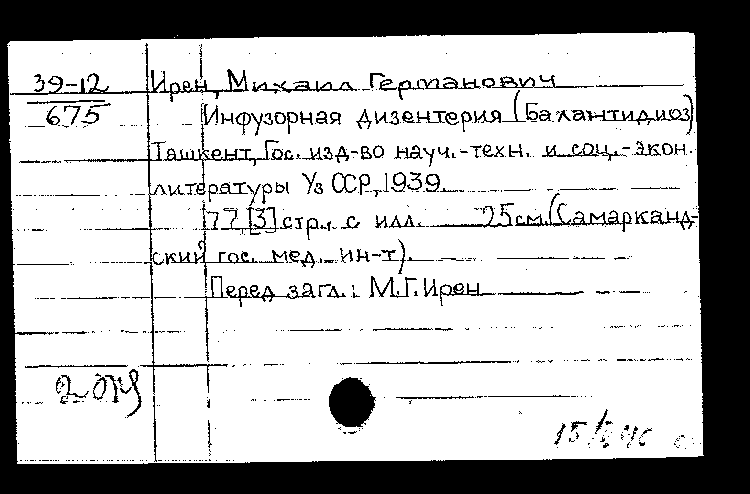 39-12 Ирен, Михаил Германович
675 Инфузорная дизентерия (Балантидиоз)
Ташкент, Гос. изд-во науч.-техн. и соц.-экон.
литературы Уз ССР, 1939.
77, [3] стр., с илл. 25 см. (Самарканд-
ский гос. мед. ин-т).
Перед загл.: М.Г. Ирен